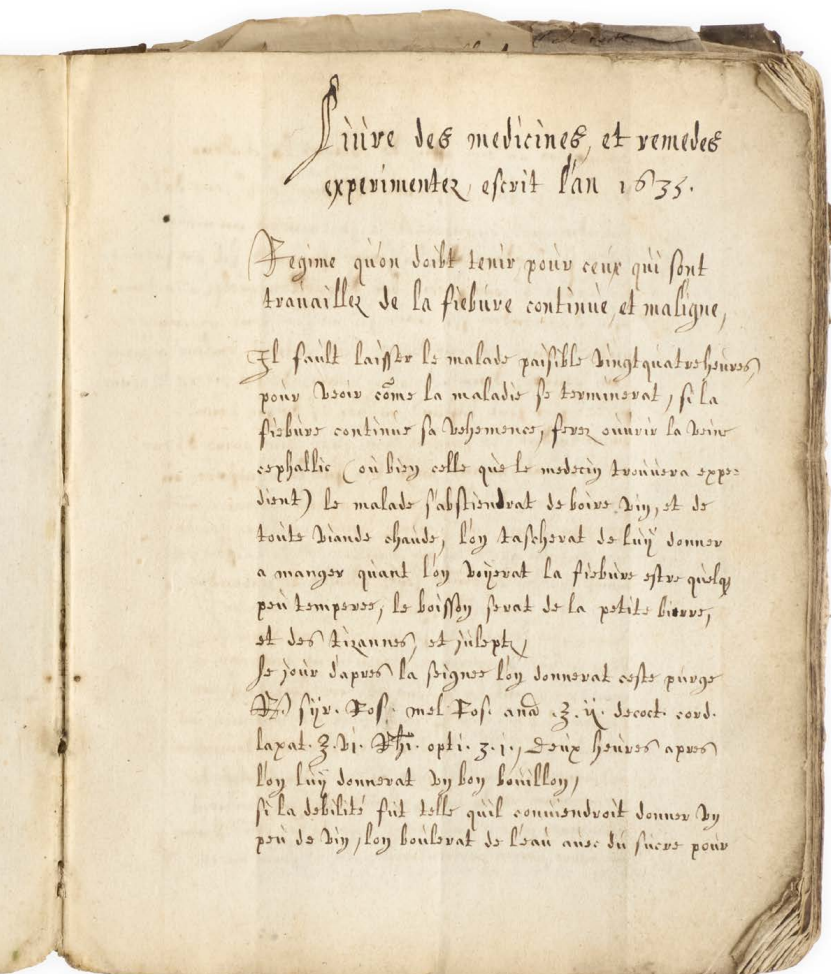 Liure des medicines, et remedes
experimentez, escrit l'an 1635.
Regime qu'on doibt tenir pour ceux qui sont
trauaillez de la fiebure continue, et maligne,
Il fault laisser le malade paisible vingtquatre heures,
pour veoir cõme la maladie se terminerat, si la
fiebure continue sa vehemence, ferez ouurir la veine
cephallic (ou bien celle que le medecin trouuera expe=
dient) le malade s'abstiendrat de boire vin, et de
toute viande chaude, l'on tascherat de luÿ donner
a manger quant l'on voÿerat la fiebure estre quelq
peu temperee, le boisson serat de la petite bierre,
et des tizannes, et juleptz,
Le jour d'apres la seignee l'on donnerat ceste purge
℞) sÿr. Ros. mel Ros. anã .ʒ. ij. decoct. cord.
laxat. ʒ. vi. Rhi. opti. ʒ. i., Deux heures apres
l'on luÿ donnerat vn bon bouillon,
si la debilité fut telle quil conuiendroit donner vn
peu de vin, lon boulerat de l'eau auec du sucre pour